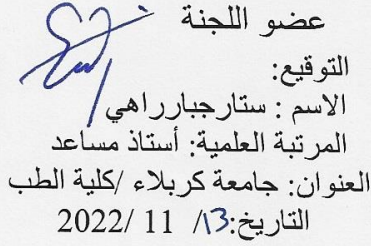 عضو اللجنة
التوقيع:
الاسم : ستارجبارراهي
المرتبة العلمية: أستاذ مساعد
العنوان: جامعة كربلاء /كلية الطب
التاريخ:13/ 11 /2022